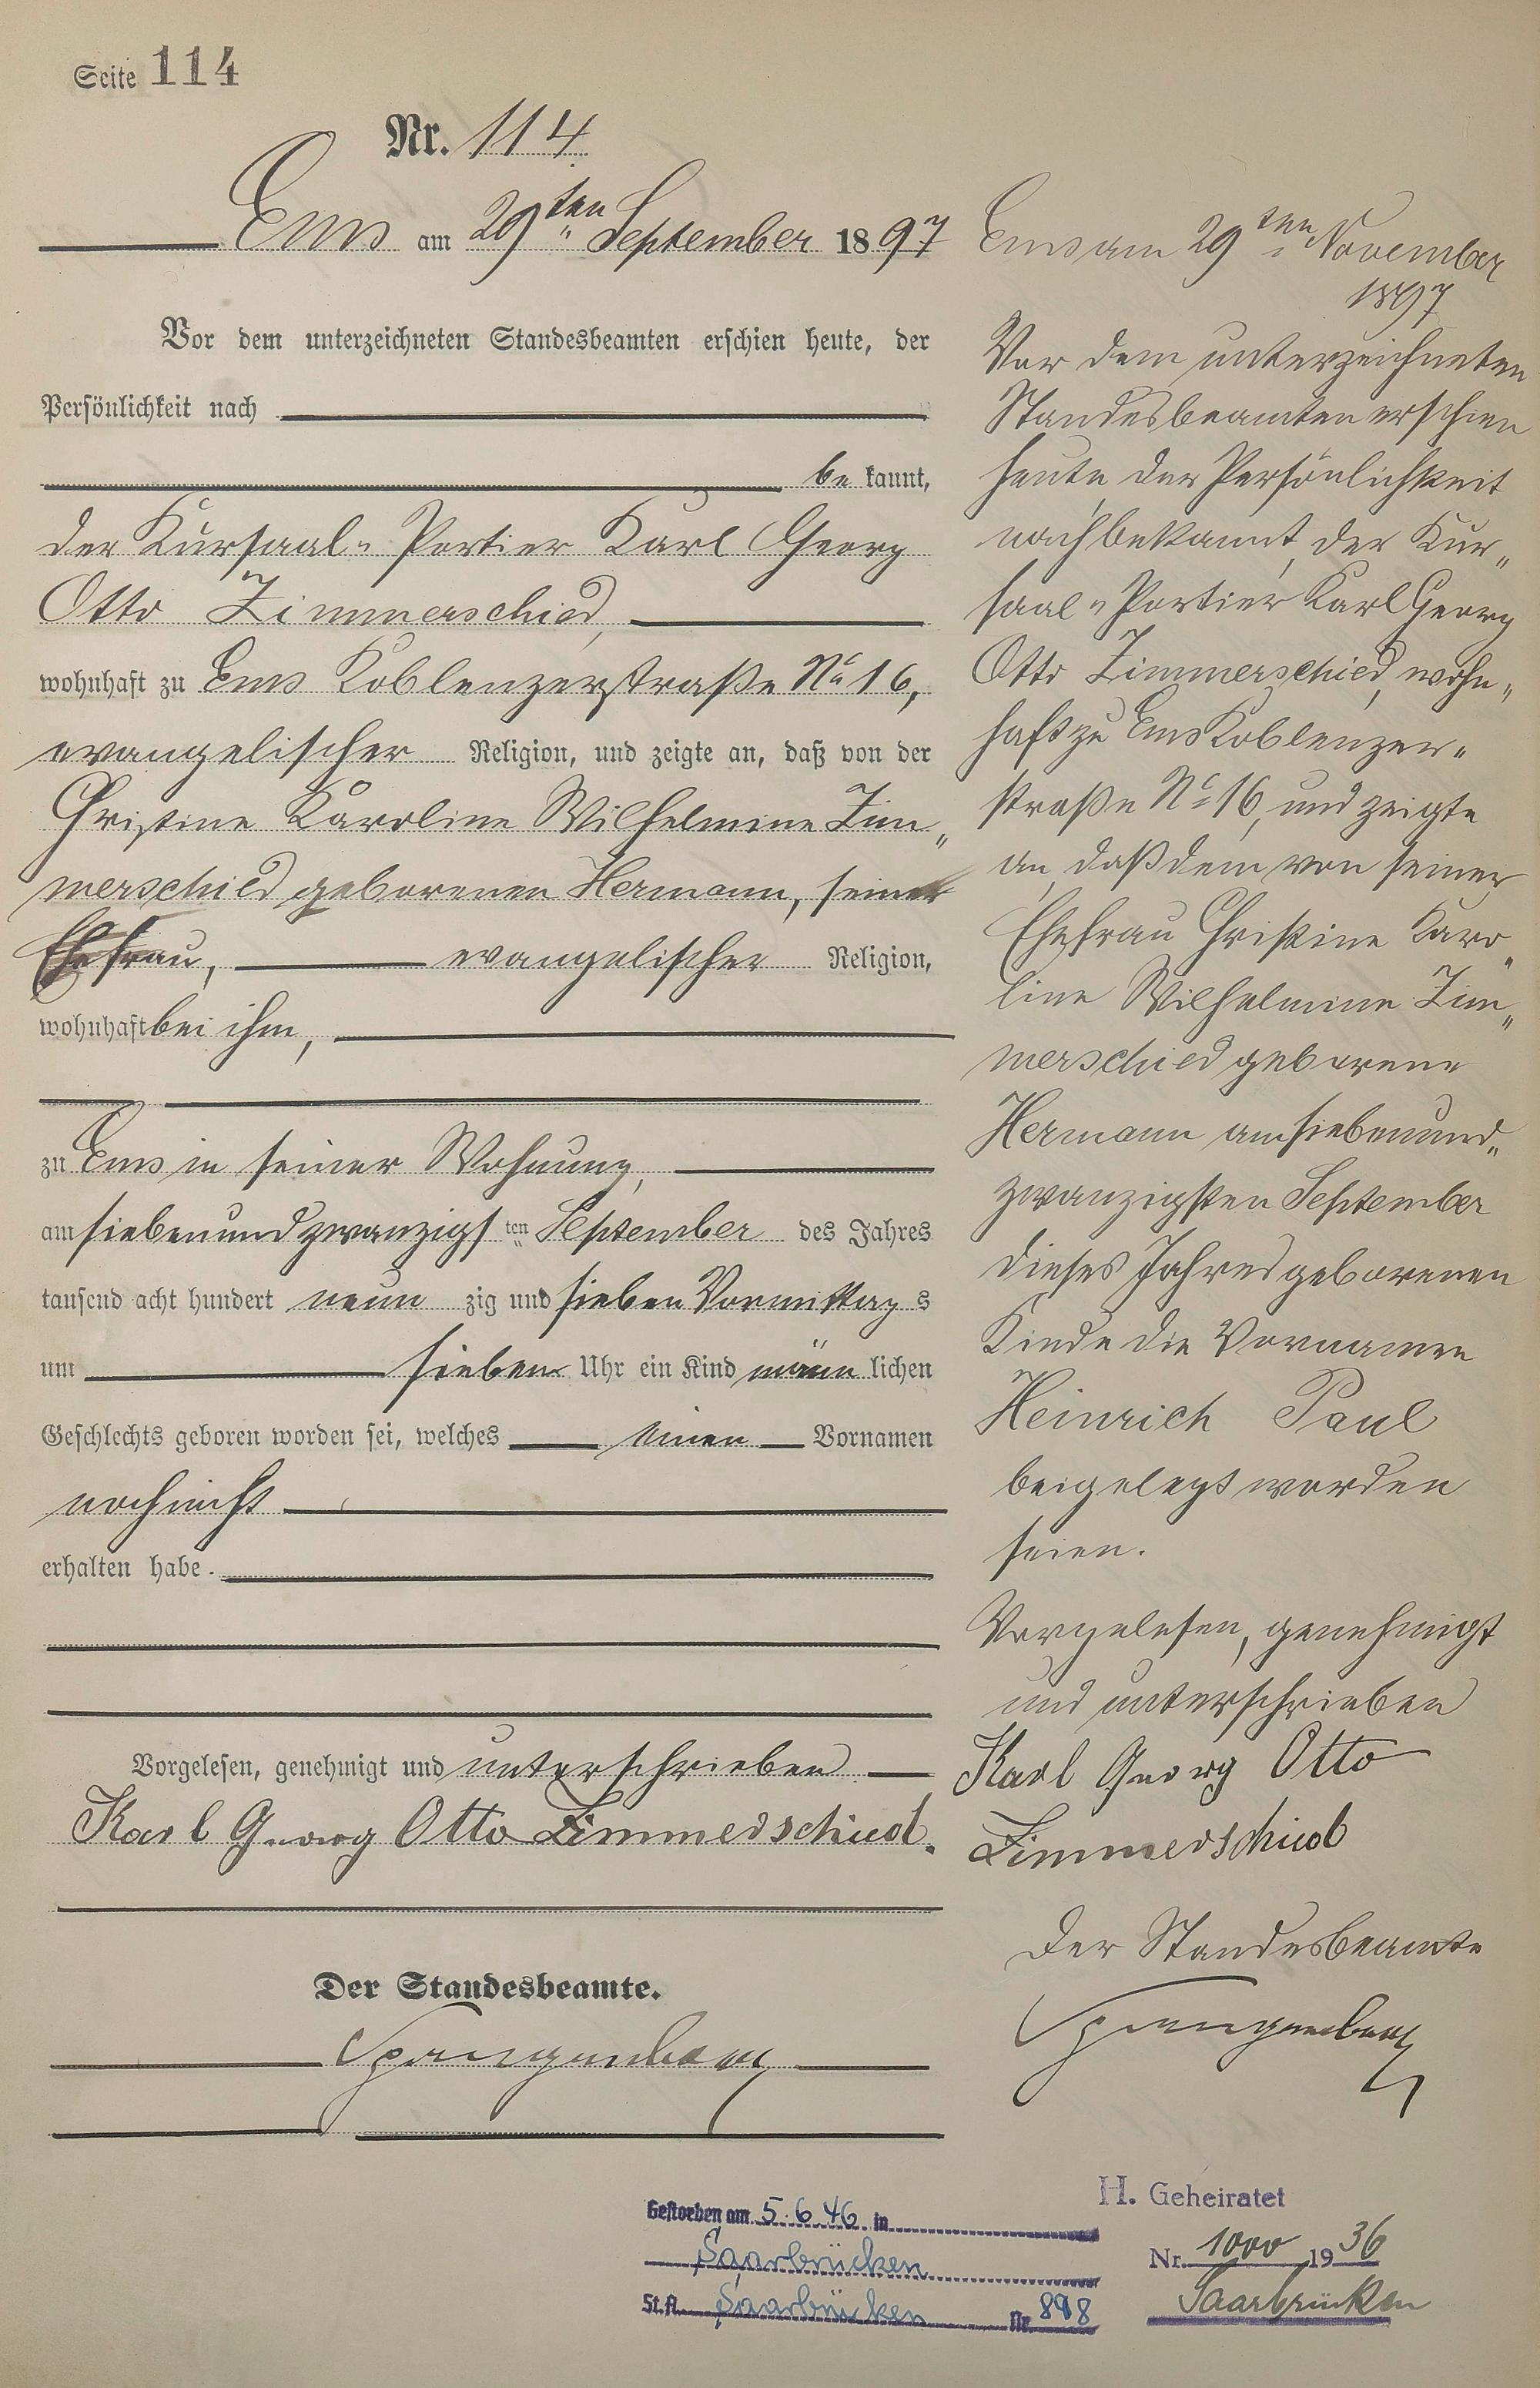 Seite 114
Nr. 114
Ems am 29ten September 1897
Vor dem unterzeichneten Standesbeamten erschien heute, der
Persönlichkeit nach
be kannt,
der Kursaal-Portier Karl Georg
Otto Zimmerschied,
wohnhaft zu Ems Koblenzerstraße No 16,
evangelischer Religion, und zeigte an, daß von der
Christine Karoline Wilhelmine Zim-
merschied geborenen Hermann, seiner
Ehefrau, evangelischer Religion,
wohnhaft bei ihm,
zu Ems in seiner Wohnung,
am siebenundzwanzigsten September des Jahres
tausend acht hundert neun zig und sieben Vormittag s
um sieben Uhr ein Kind männ lichen
Geschlechts geboren worden sei, welches einen Vornamen
noch nicht
erhalten habe.
Vorgelesen, genehmigt und unterschrieben
Karl Georg Otto Zimmerschied.
Der Standesbeamte.
Spangenberg
Ems am 29ten November
1897
Vor dem unterzeichneten
Standesbeamten erschien
heute der Persönlichkeit
nach bekannt, der Kur-
saal-Portier Karl Georg
Otto Zimmerschied, wohn-
haft zu Ems Koblenzer-
straße No 16, und zeigte
an, daß dem von seiner
Ehefrau Christine Karo-
line Wilhelmine Zim-
merschied geborene
Hermann am siebenund-
zwanzigsten September
dieses Jahres geborenen
Kinde die Vornamen
Heinrich Paul
beigelegt worden
seien.
Vorgelesen, genehmigt
und unterschrieben
Karl Georg Otto
Zimmerschied
Der Standesbeamte
Spangenberg
Gestorben am 5.6.46 in
Saarbrücken
St.A. Saarbrücken Nr. 898
H. Geheiratet
Nr. 1000 1936
Saarbrücken